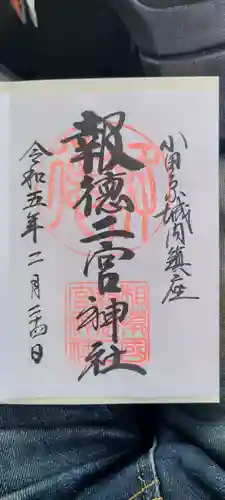 小田原城内鎮座
報徳二宮神社
令和五年二月二十四日